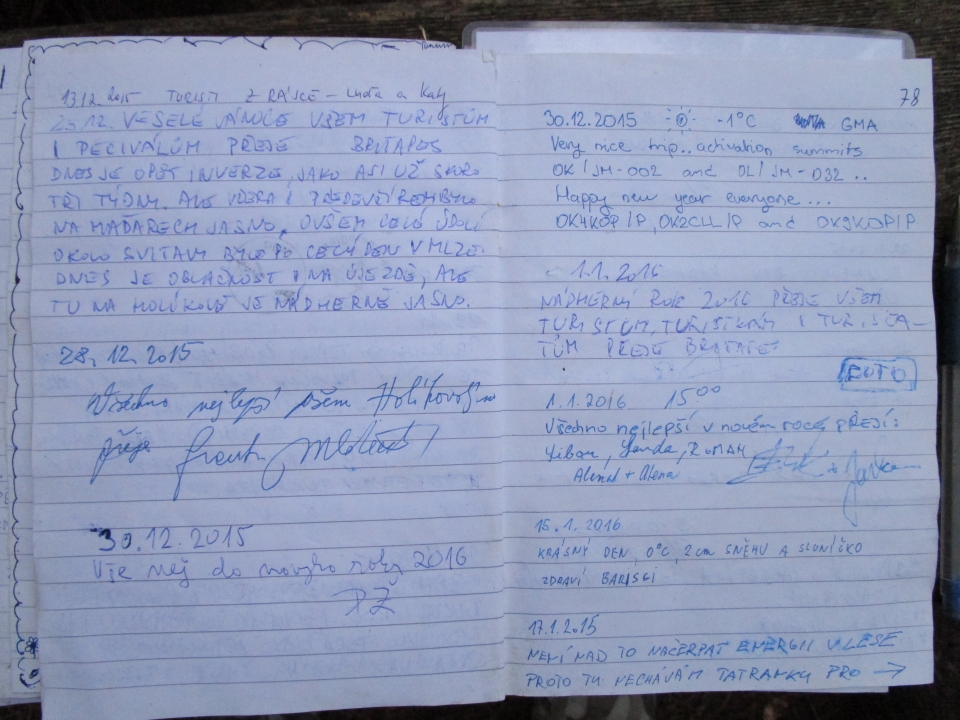 13.12.2015 TURISTI Z RÁJCE - Luďa a Katy
25.12. VESELÉ VÁNOCE VŠEM TURISTŮM
I PECIVÁLŮM PŘEJE
DNES JE OPĚT INVERZE, JAKO ASI UŽ SKORO
TŘI TÝDNY. ALE VČERA I PŘEDEVČÍREM BYLO
NA MAĎARECH JASNO, OVŠEM CELÉ ÚDOLÍ
OKOLO SVITAVY BYLO PO CELÝ DEN V MLZE.
DNES JE OBLAČNOST I NA ÚJEZDĚ, ALE
TU NA HOLÍKOVĚ JE NÁDHERNĚ JASNO.
28.12.2015
Všechno nejlepší všem
přeje
30.12.2015
Vše nej do nového roku 2016
PŽ
78
30.12.2015 -1°C GMA
Very nice trip.. activation summits
OK/JM-002 and OL/JM-032 ..
Happy new year everyone...
OK4KOP/P, OK2CLL/P and OK9KOP/P
1.1.2016
NÁDHERNÝ ROK 2016 PŘEJE VŠEM
TURISTŮM, TURISTKÁM I TURISŤA-
TŮM PŘEJE
1.1.2016 15⁰⁰
Všechno nejlepší v novém roce PŘEJÍ:
Libor, Janda, ROMAN
Alena
15.1.2016
KRÁSNÝ DEN, 0°C, 2cm SNĚHU A SLUNÍČKO
ZDRAVÍ
17.1.2015
NENÍ NAD TO NAČERPAT ENERGII V LESE
PROTO TU NECHÁVÁM TATRANKU PRO →